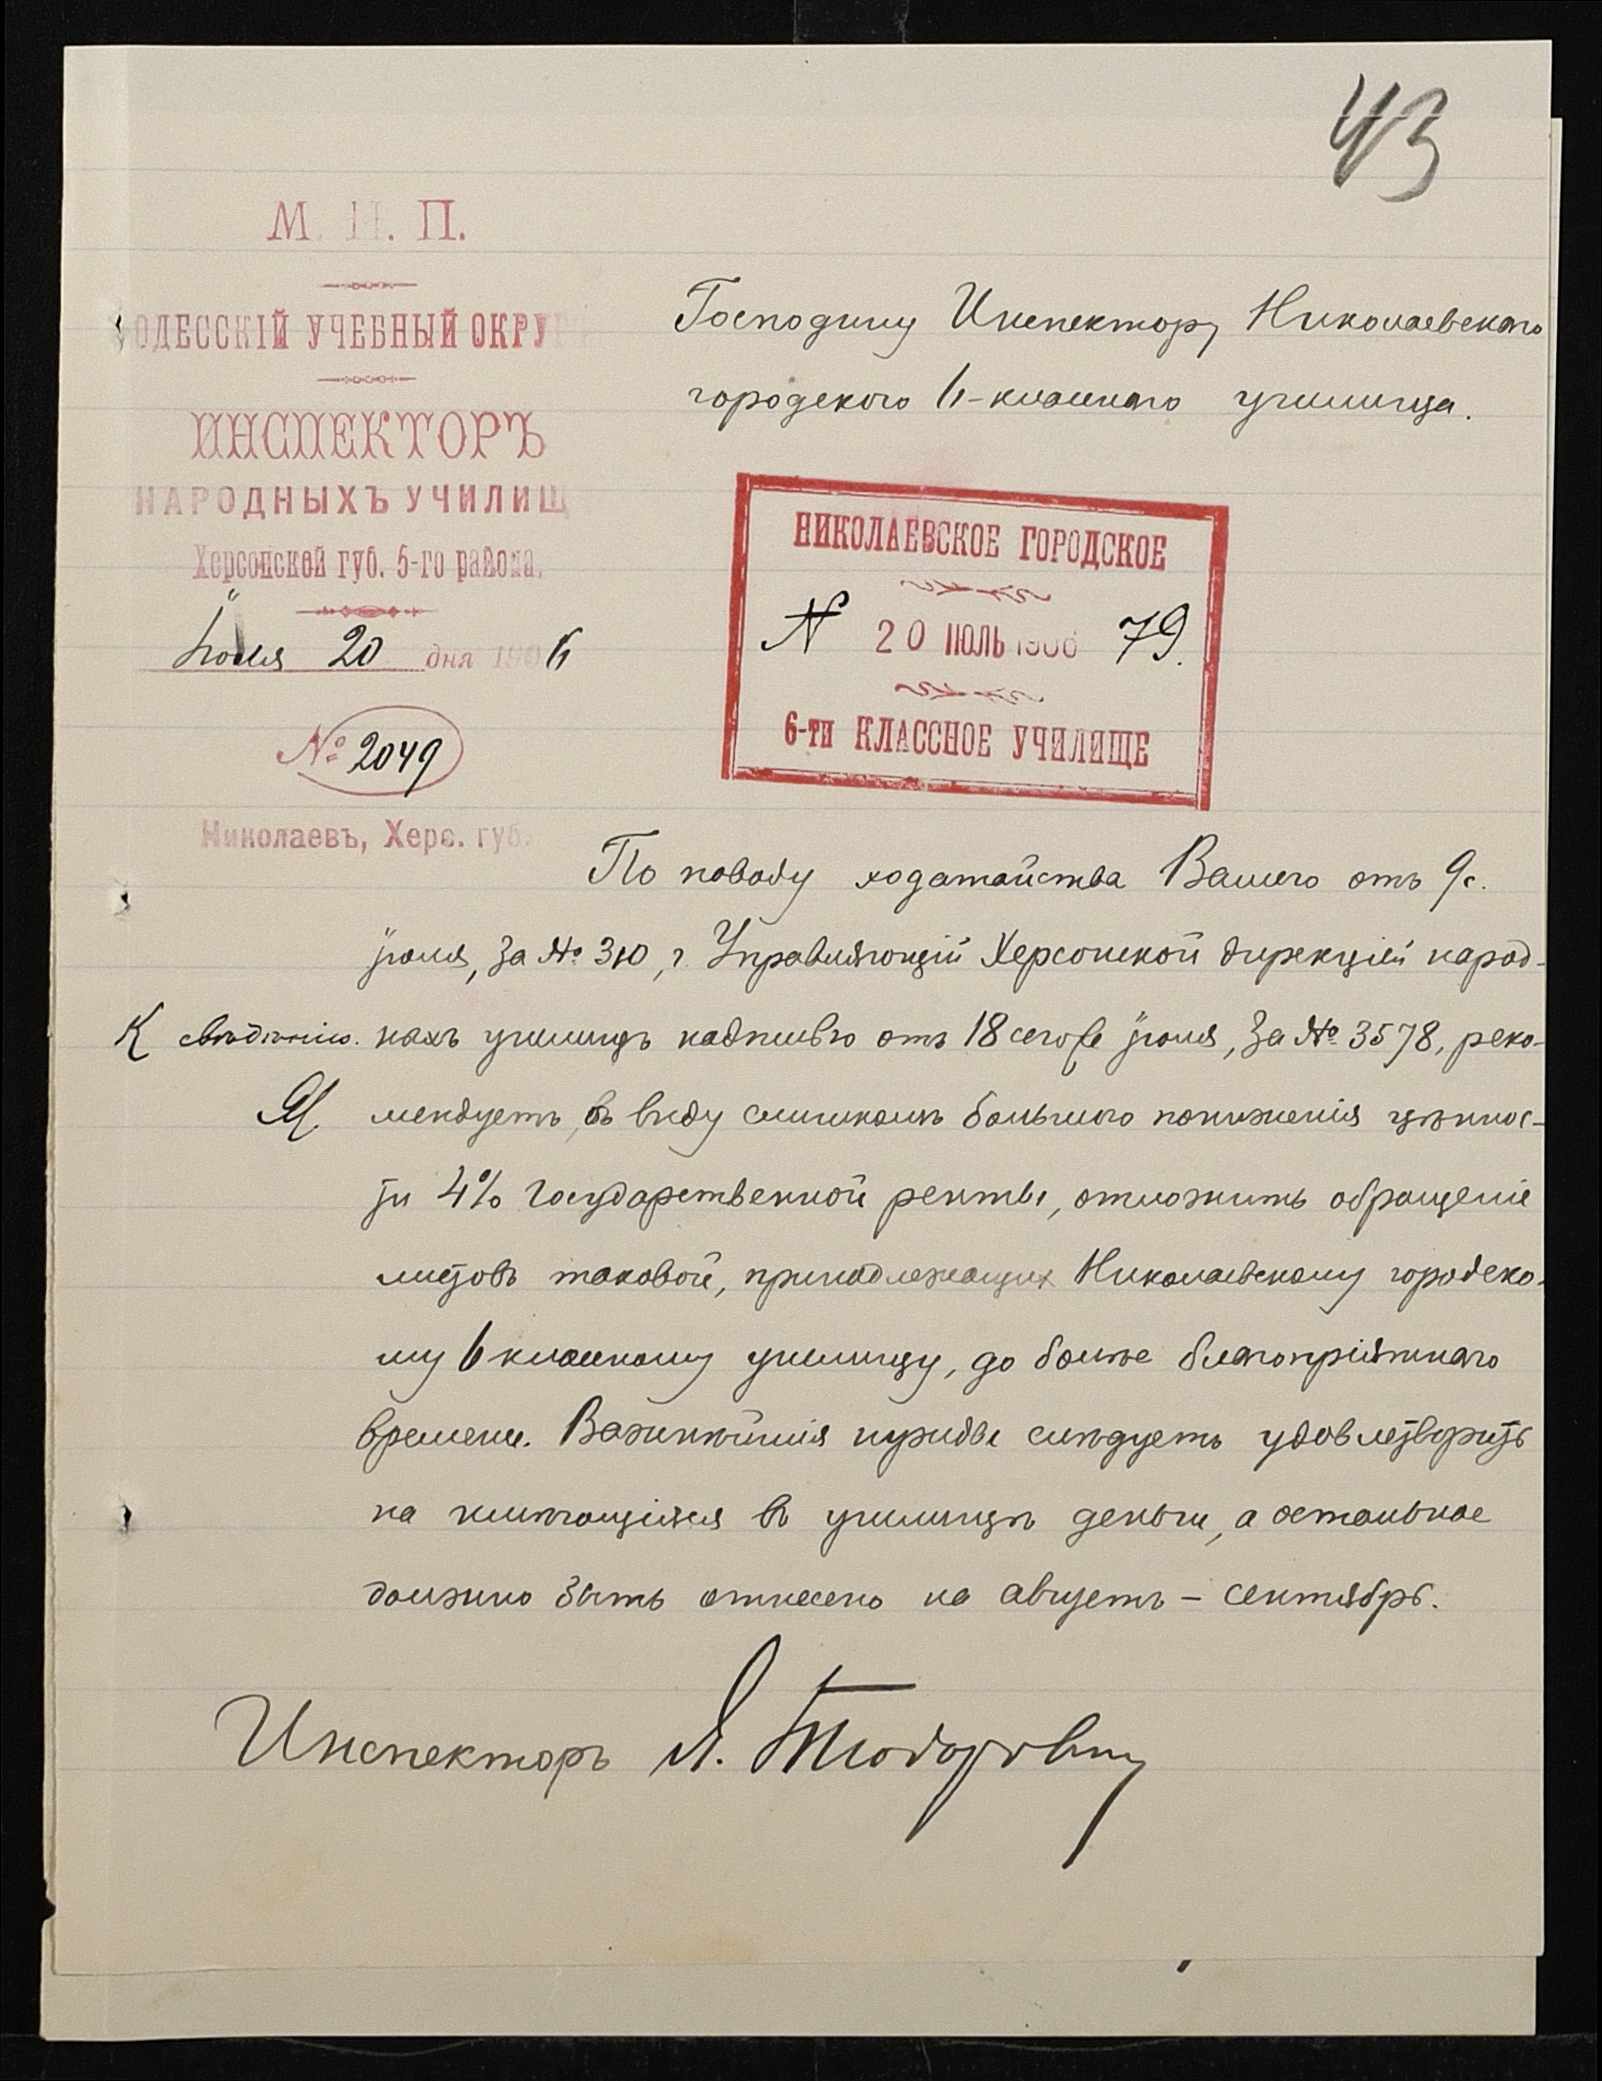 43
М. Н. П.
ОДЕССКІЙ УЧЕБНЫЙ ОКРУ
ИНСПЕКТОРЪ
НАРОДНЫХЪ УЧИЛИЩ
Херсонской губ. 5-го района.
Іюля 20 дня 1906
№ 2049
Николаевъ, Херс. губ.
Господину Инспектору Николаевскаго
городского 6-класснаго училища.
НИКОЛАЕВСКОЕ ГОРОДСКОЕ
N 20 ІЮЛЬ 1906 79.
6-ти КЛАССНОЕ УЧИЛИЩЕ
По поводу ходатайства Вашего отъ 9 с.
іюля, за № 310, г. Управляющій Херсонской дирекціей народ-
ныхъ училищъ надписью отъ 18 сего іюля, за № 3578, реко-
мендуетъ, въ виду слишкомъ большого пониженія цѣннос-
ти 4% Государственной ренты, отложить обращеніе
листовъ таковой, принадлежащих Николаевскому городско-
му 6 классному училищу, до болѣе благопріятнаго
времени. Важнѣйшія нужды слѣдуетъ удовлетворить
на имѣющіяся въ училищѣ деньги, а остальное
должно быть отнесено на августъ – сентябрь.
К свѣдѣнію.
Инспекторъ А. Тодорович